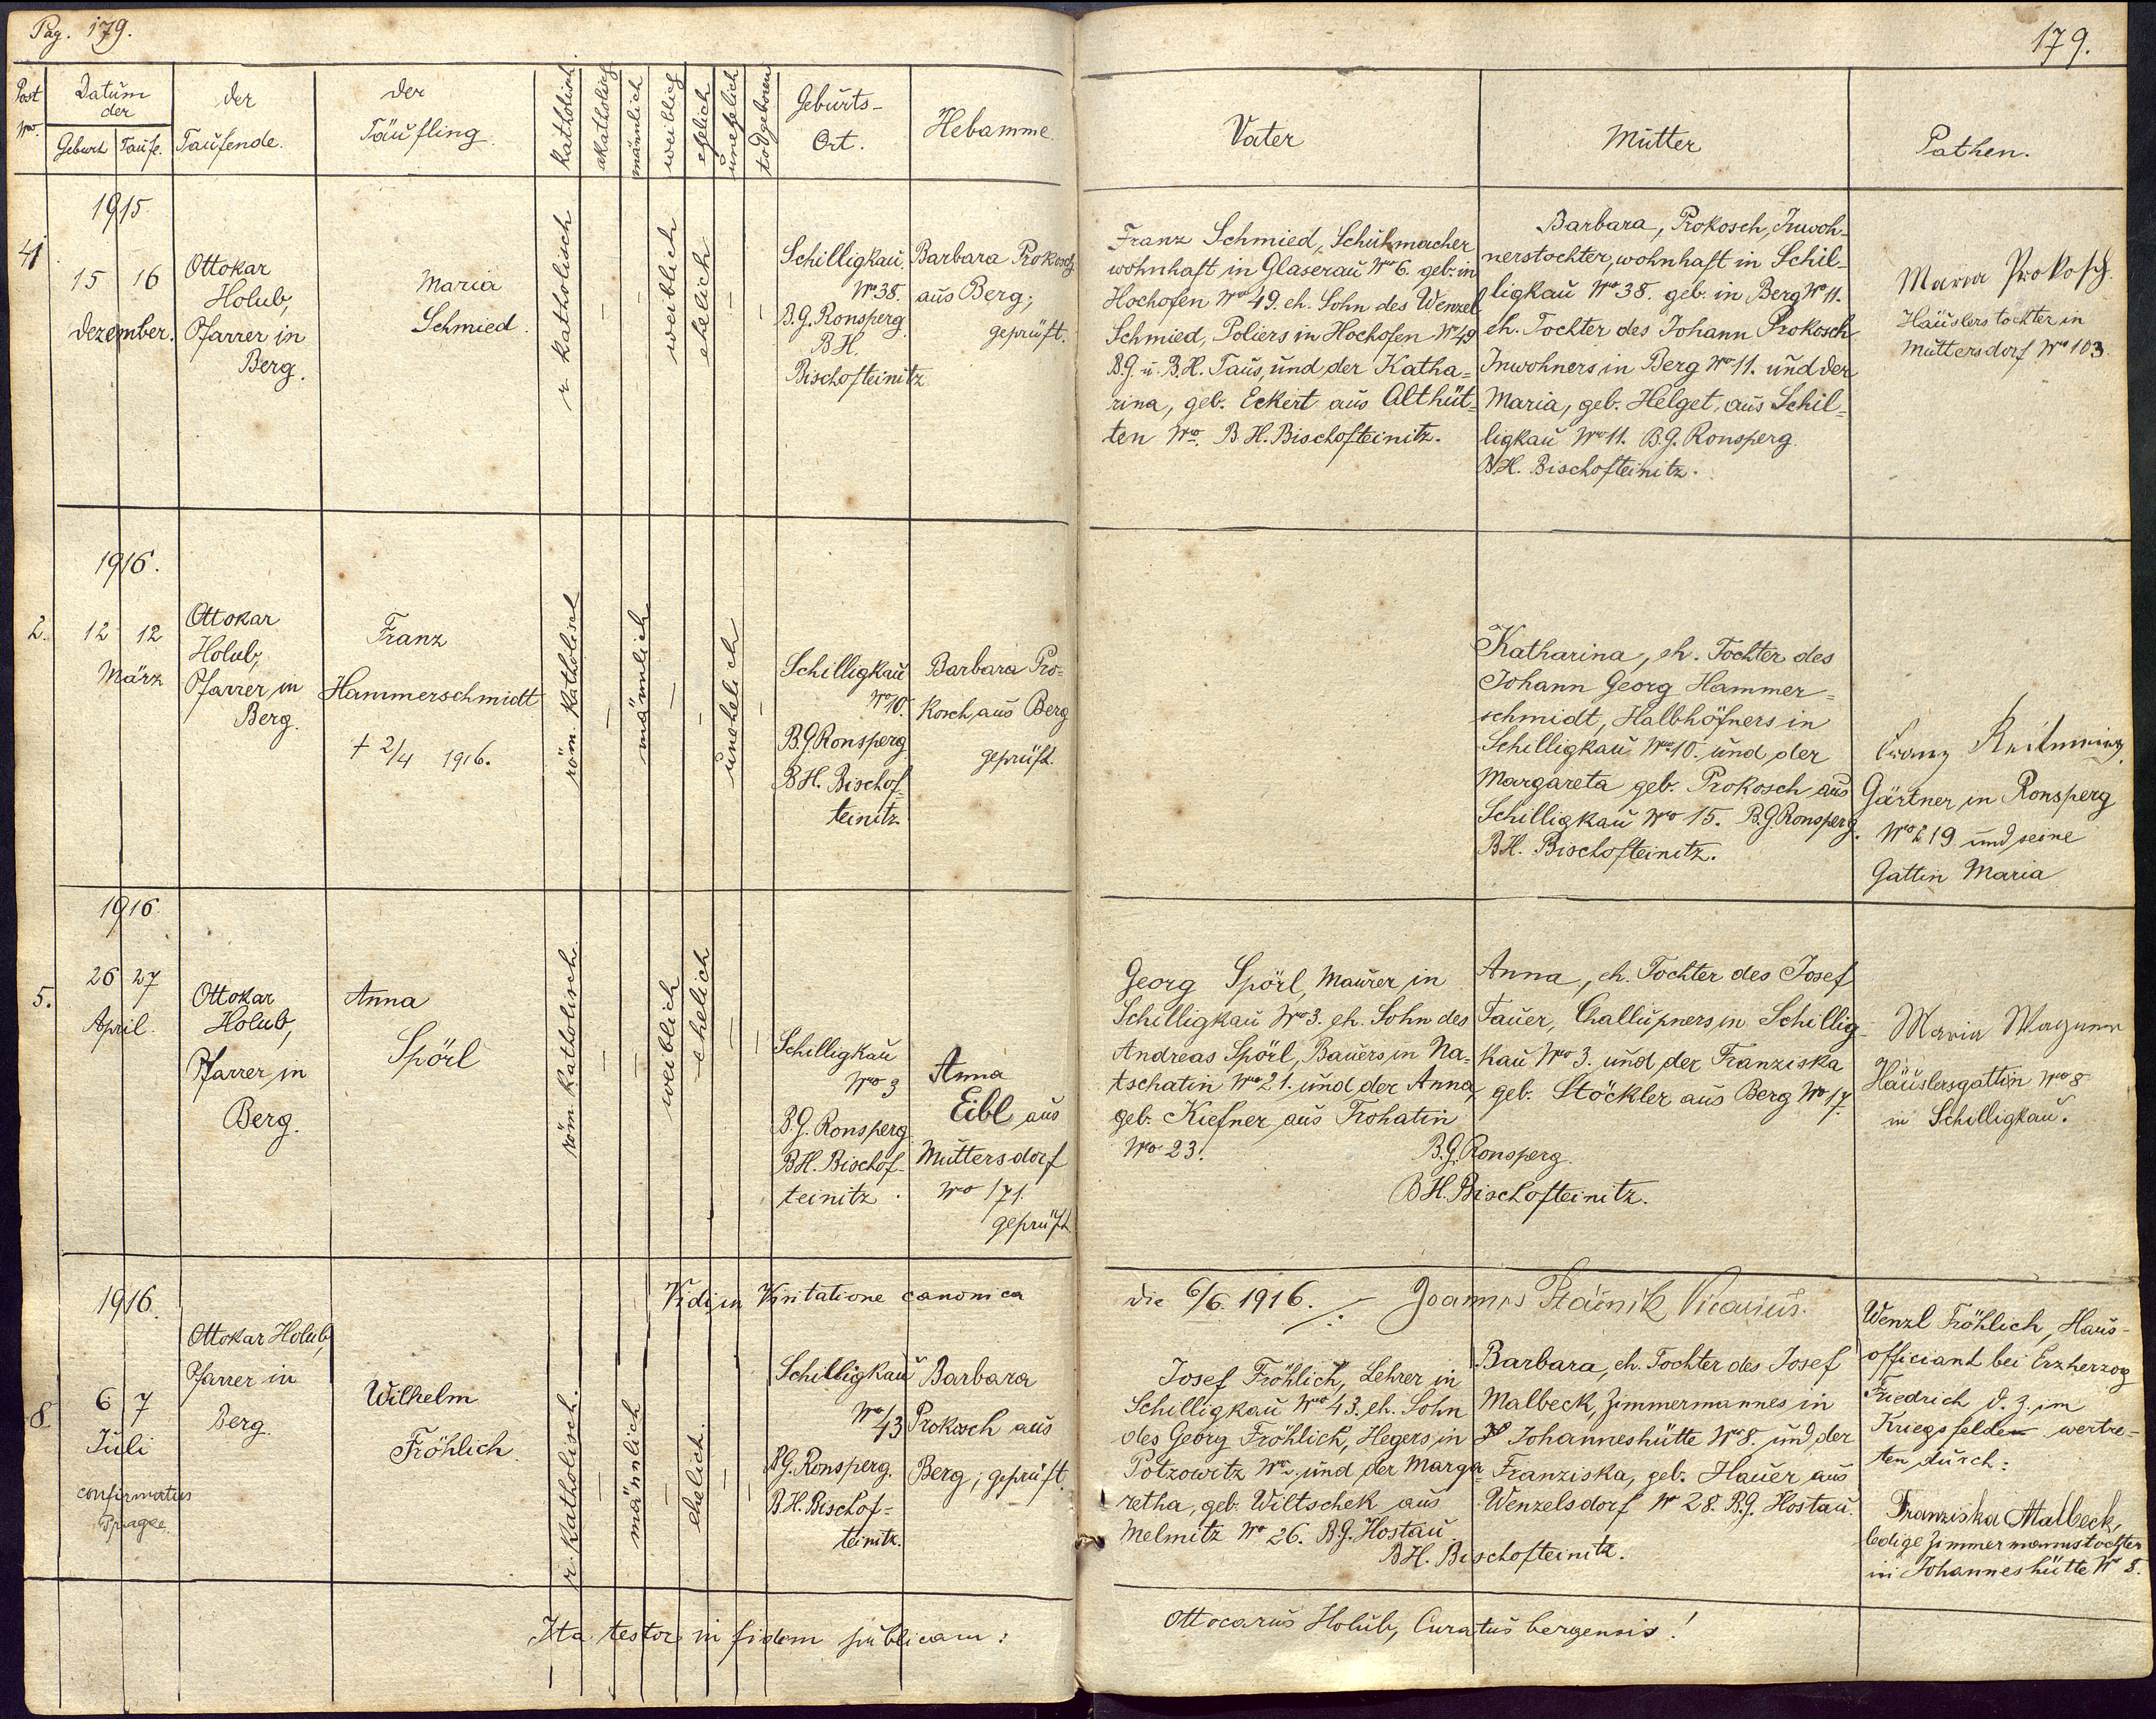 Pag. 179.
179.
Post
No.
Datum
der
Geburt
Taufe.
der
Taufende.
der
Täufling.
katholisch.
akatholisch
männlich
weiblich
ehelich
unehelich
todgeboren
Geburts-
Ort.
Hebamme.
Vater
Mutter
Pathen.
1915.
41
15 16
Dezember.
Ottokar
Holub,
Pfarrer in
Berg.
Maria
Schmied.
r. katholisch
—
—
weiblich
ehelich
—
—
Schilligkau,
No 38.
B.G. Ronsperg
B.H.
Bischofteinitz
Barbara Prokosch
aus Berg;
geprüft.
Franz Schmied, Schuhmacher
wohnhaft in Glaserau No 6. geb. in
Hochofen No 49. eh. Sohn des Wenzel
Schmied, Poliers in Hochofen No 49
B.G. u. B.H. Taus, und der Katha=
rina, geb. Eckert aus Althüt=
ten No. B.H. Bischofteinitz.
Barbara, Prokosch, Inwoh-
nerstochter, wohnhaft in Schil-
ligkau No 38. geb. in Berg No 11.
eh. Tochter des Johann Prokosch
Inwohners in Berg No 11. und der
Maria, geb. Helget, aus Schil=
ligkau No 11. B.G. Ronsperg.
B.H. Bischofteinitz.
Maria Prokosch.
Häuslerstochter in
Muttersdorf No 103.
1916.
2.
12 12
März
Ottokar
Holub,
Pfarrer in
Berg.
Franz
Hammerschmidt
+ 2/4 1916.
röm. katholisch
—
männlich
—
—
unehelich
—
Schilligkau
No 10.
B.G. Ronsperg
B.H. Bischof-
teinitz
Barbara Pro-
kosch, aus Berg
geprüft.
Katharina, eh. Tochter des
Johann Georg Hammer=
schmidt, Halbhöfners in
Schilligkau No 10. und der
Margareta geb. Prokosch aus
Schilligkau No 15. B.G. Ronsperg.
B.H. Bischofteinitz.
Franz
Gärtner in Ronsperg
No 219 und seine
Gattin Maria
1916.
5.
26 27
April.
Ottokar
Holub,
Pfarrer in
Berg.
Anna
Spörl
röm. katholisch.
—
—
weiblich
ehelich
—
—
Schilligkau
No 3
B.G. Ronsperg
B.H. Bischof-
teinitz.
Anna
Eibl aus
Muttersdorf
No 171.
geprüft.
Georg Spörl, Maurer in
Schilligkau No 3. eh. Sohn des
Andreas Spörl, Bauers in Na-
tschatin No 21. und der Anna,
geb. Kiefner aus Trohatin
No 23.
Anna, eh. Tochter des Josef
Tauer, Challupners in Schillig-
kau No 3. und der Franziska
geb. Stöckler aus Berg No 17.
B.G. Ronsperg.
B.H. Bischofteinitz.
Maria Wagner
Häuslersgattin No 8
in Schilligkau.
Vidi in Visitatione canonica
die 6/6. 1916.
Joannes Vicarius.
1916.
8.
6 7
Juli
confirmatus
Pragae.
Ottokar Holub,
Pfarrer in
Berg.
Wilhelm
Fröhlich.
r. katholisch.
—
männlich
—
ehelich.
—
—
Schilligkau
No 43
B.G. Ronsperg.
B.H. Bischof-
teinitz.
Barbara
Prokosch aus
Berg; geprüft.
Josef Fröhlich, Lehrer in
Schilligkau No 43. eh. Sohn
des Georg Fröhlich, Hegers in
Potzowitz No. und der Marga
retha, geb. Wiltschek aus
Melmitz No 26. B.G. Hostau.
Barbara, eh. Tochter des Josef
Malbeck, Zimmermannes in
Johanneshütte No 8. und der
Franziska, geb. Hauer aus
Wenzelsdorf No 28. B.G. Hostau.
B.H. Bischofteinitz.
Wenzl Fröhlich, Haus-
officiant bei Erzherzog
Friedrich d. Z. im
Kriegsfelde wertre-
ten durch:
Franziska Malbeck,
ledige Zimmermannstochter
in Johanneshütte No 8.
Ita testor in fidem publicam:
Ottocarus Holub, Curatus bergensis!